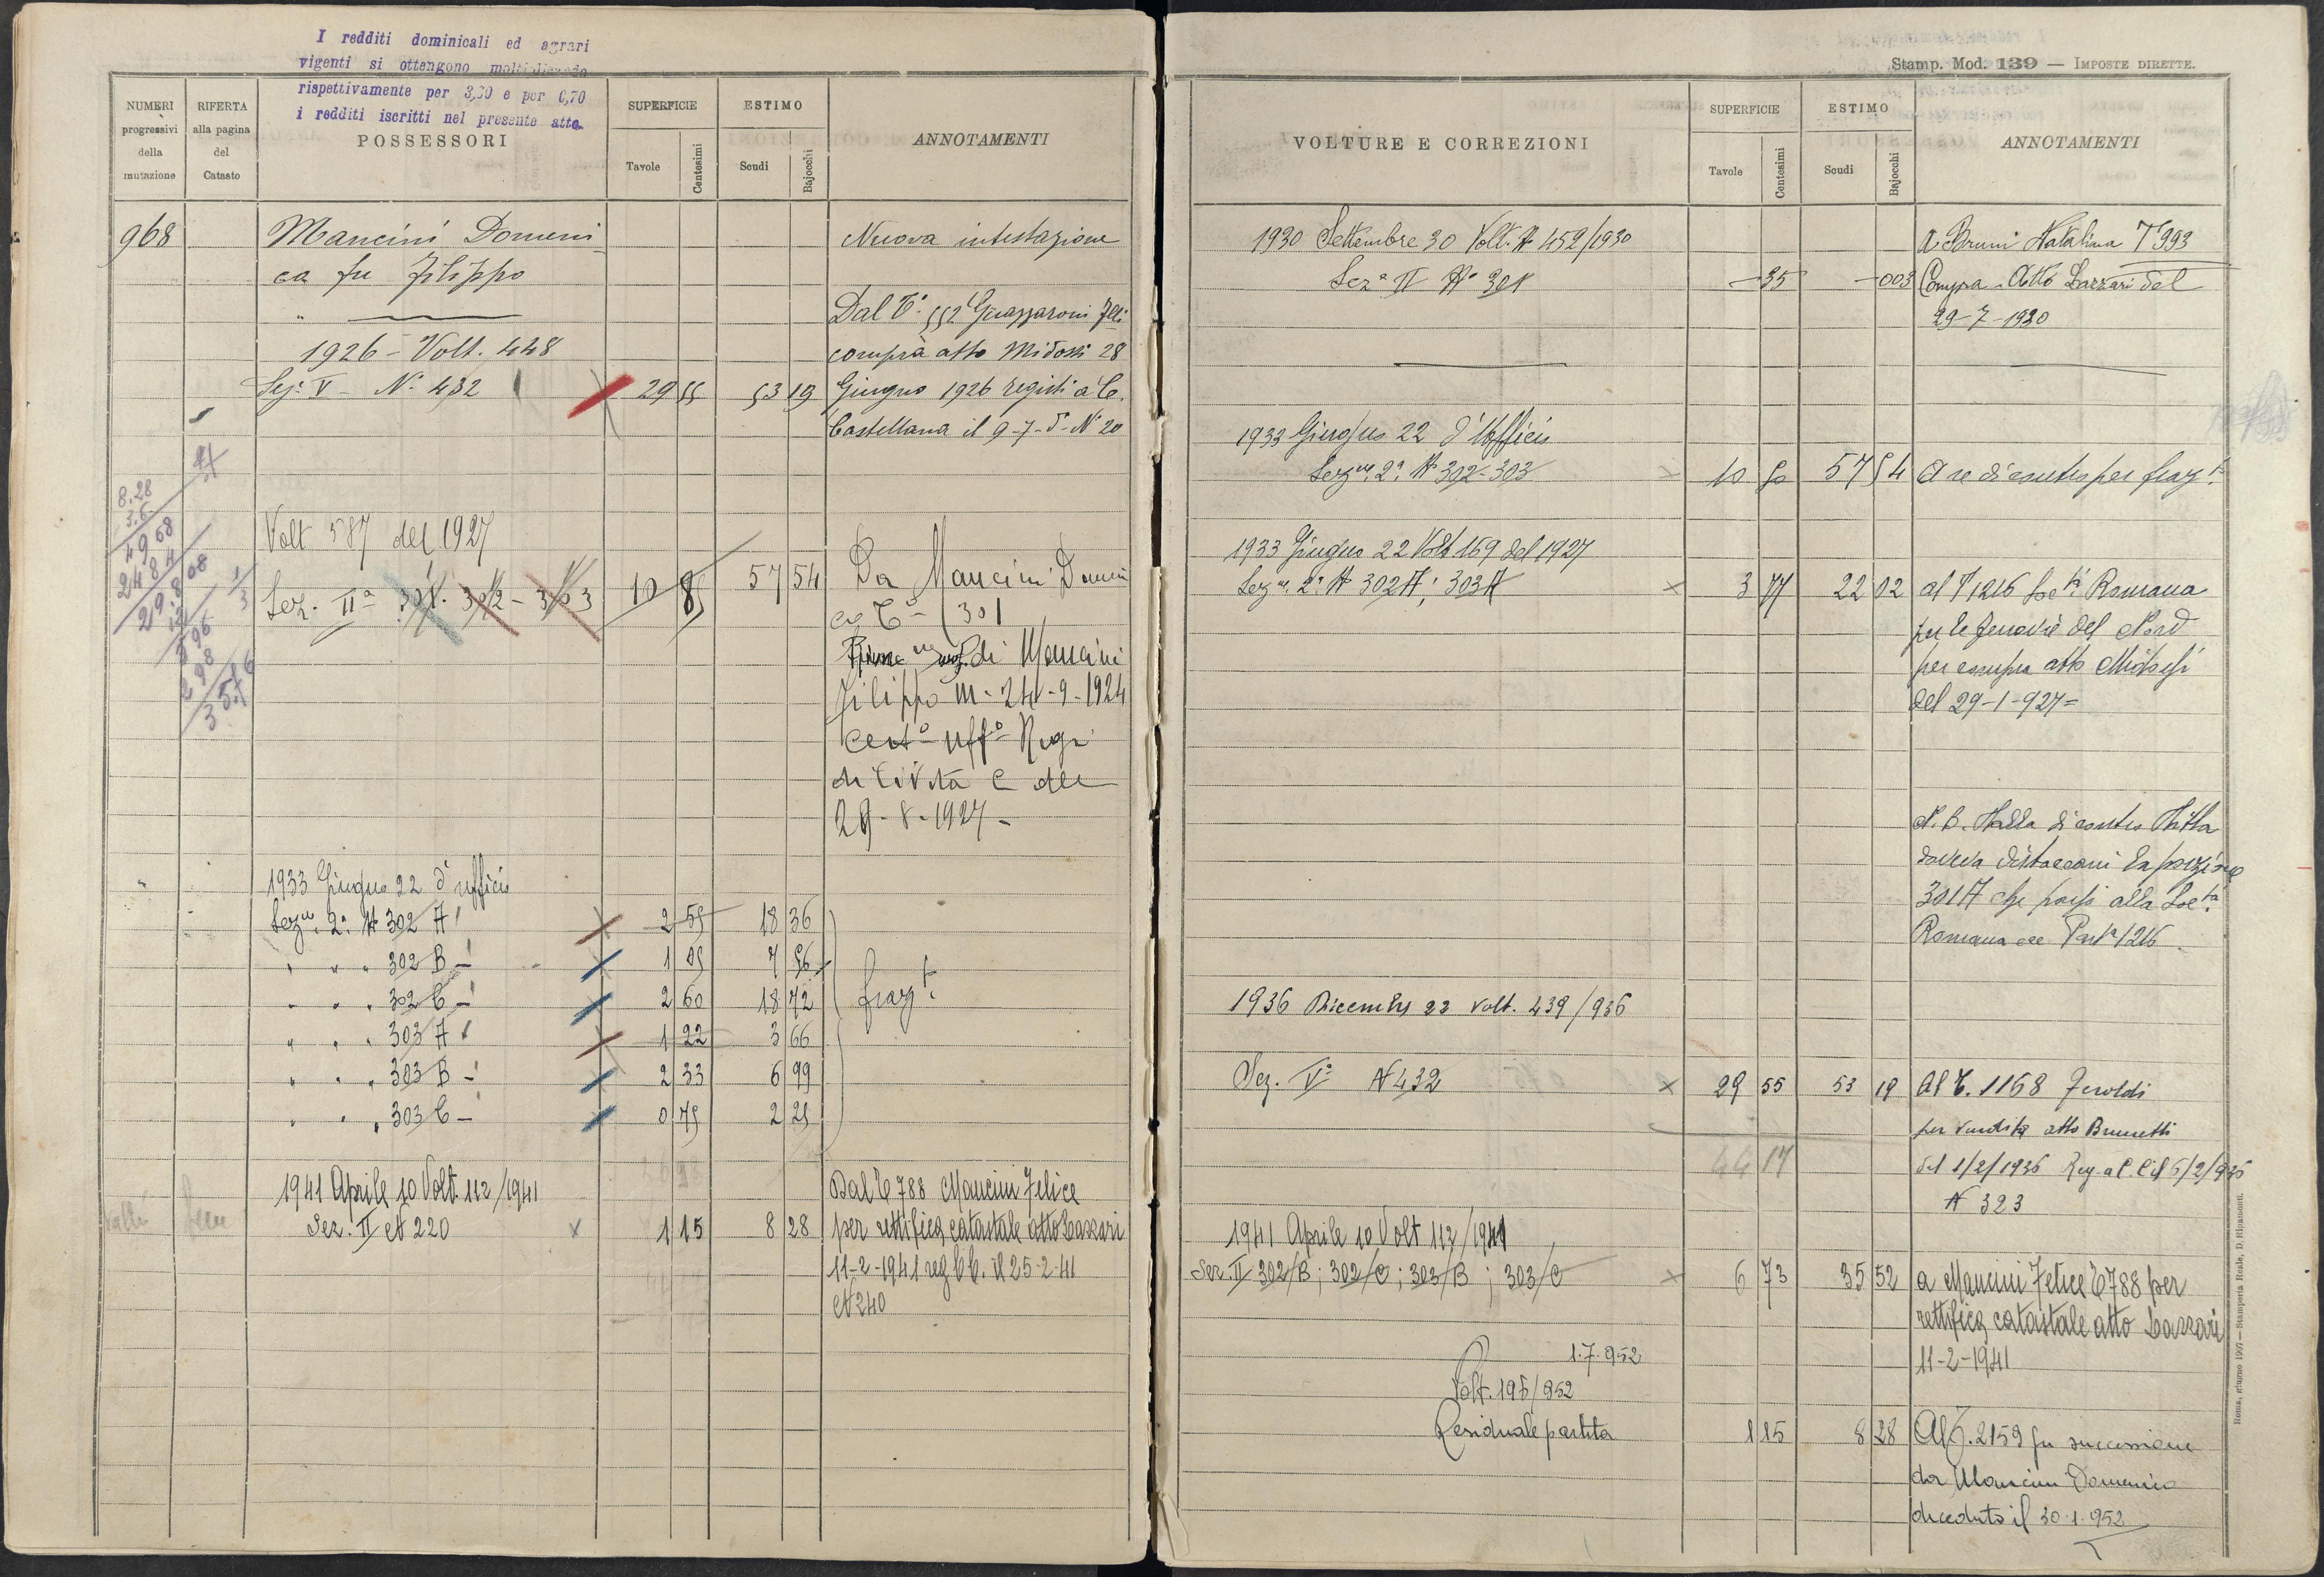 I redditi dominicali ed agrari
vigenti si ottengono moltiplicando
rispettivamente per 3,00 e per 0,70
i redditi iscritti nel presente atto.
NUMERI progressivi della mutazione
RIFERTA alla pagina del Catasto
POSSESSORI
SUPERFICIE
Tavole Centesimi
ESTIMO
Scudi Bajocchi
ANNOTAMENTI
968 Mancini Domeni
ca fu Filippo
1926 - Volt. 448
Sez. V - N. 432 29 55 53 19
Nuova intestazione
Dal T° 552 Guazzaroni Feli
compra atto Midossi 28
Giugno 1926 registi a C.
Castellana il 9-7-d° N 20
8.28
3.6
4968
2484
29.808
12
596
298
3576
1/3
Volt 587 del 1927
Sez. IIa 301. 302 - 303 10 85 57 54
Da Mancini Domeni
ca T° (301
di Mancini
Filippo m. 24-9-1924
Cert° Uff° Regi
di Civita C del
29-8-1927 -
1933 Giugno 22 d'ufficio
Sezne 2a N 302 A 2 55 18 36
" " " 302 B - 1 05 7 56
" " " 302 C - 2 60 18 72
" " " 303 A 1 22 3 66
" " " 303 B - 2 33 6 99
" " " 303 C - 0 75 2 25
frazto
1941 Aprile 10 Volt. 112/1941
Sez. II N 220 1 15 8 28
Dal T 788 Mancini Felice
per rettifica catastale atto Lazzari
11-2-1941 reg C.C. il 25-2-41
N 240
Stamp. Mod. 139 — IMPOSTE DIRETTE.
VOLTURE E CORREZIONI
SUPERFICIE
Tavole Centesimi
ESTIMO
Scudi Bajocchi
ANNOTAMENTI
1930 Settembre 30 Volt. N 452/1930
Seza II N° 301 - 35 - 003
A Bruni Natalina T 993
Compra - Atto Lazzari del
29-7-1930
1933 Giugno 22 d'Ufficio
Sezne 2a N 302-303 10 50 57 54 A re di contro per frazto
1933 Giugno 22 Volt. 169 del 1927
Sezne 2a N 302A; 303A 3 77 22 02 al T 1216 Soctà Romana
per le Ferrovie del Nord
per compra atto Midossi
del 29-1-927=
N.B. Dalla di contro Ditta
doveva distaccarsi la porzione
301A che passò alla Socta
Romana Parta 1216
1936 Dicembre 22 Volt. 439/936
Sez. Va N 432 29 55 53 19 Al T. 1168 Feroldi
per vendita atto Brunetti
44 17
del 1/2/1936 Reg. a C. C. il 5/2/936
N 323
1941 Aprile 10 Volt 112/1941
Sez. II 302/B; 302/C; 303/B; 303/C 6 73 35 52 a Mancini Felice T 788 per
rettifica catastale atto Lazzari
11-2-1941
1.7.952
Volt. 195/952
Residuale partita 1 15 8 28 Al T. 2159 per successione
da Mancini Domenica
deceduta il 30.1.952
Roma, giugno 1907 — Stamperia Reale, D. Ripamonti.